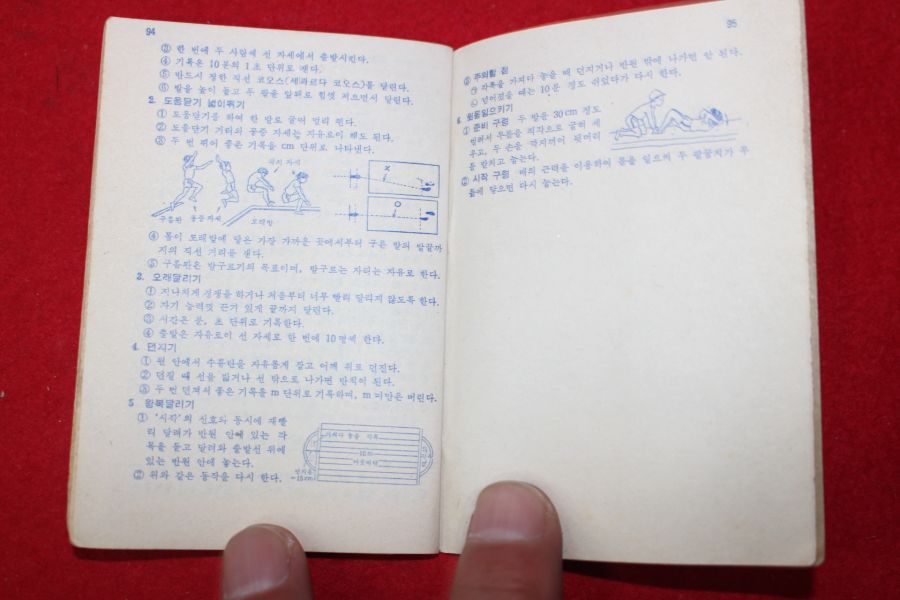 94
③ 한 번에 두 사람씩 선 자세에서 출발시킨다.
④ 기록은 10분의 1초 단위로 잰다.
⑤ 반드시 정한 직선 코오스(세퍼르다 코오스)를 달린다.
⑥ 발을 높이 들고 두 팔을 앞뒤로 힘껏 저으면서 달린다.
2. 도움닫기 넓이뛰기
① 도움닫기를 하여 한 발로 굴러 멀리 뛴다.
② 도움닫기 거리와 공중 자세는 자유로이 해도 된다.
③ 두 번 뛰어 좋은 기록을 cm 단위로 나타낸다.
착지 자세
구름판 공중 자세 모래밭
④ 몸이 모래밭에 닿은 가장 가까운 곳에서부터 구른 발의 발끝까
지의 직선 거리를 잰다.
⑤ 구름판은 발구르기의 목표이며, 발구르는 자리는 자유로 한다.
3. 오래달리기
① 지나치게 경쟁을 하거나 처음부터 너무 빨리 달리지 않도록 한다.
② 자기 능력껏 끈기 있게 끝까지 달린다.
③ 시간은 분, 초 단위로 기록한다.
④ 출발은 자유로이 선 자세로 한 번에 10명씩 한다.
4. 던지기
① 원 안에서 수류탄을 자유롭게 잡고 어깨 위로 던진다.
② 던질 때 선을 밟거나 선 밖으로 나가면 반칙이 된다.
③ 두 번 던져서 좋은 기록을 m 단위로 기록하며, m 미만은 버린다.
5. 왕복달리기
① '시작'의 신호와 동시에 재빨
리 달려가 반원 안에 있는 각
목을 들고 달려와 출발선 뒤에
있는 반원 안에 놓는다.
② 위와 같은 동작을 다시 한다.
10m
15cm
95
③ 주의할 점
㉠ 각목을 가져다 놓을 때 던지거나 반원 밖에 나가면 안 된다.
㉡ 넘어졌을 때는 10분 정도 쉬었다가 다시 한다.
6. 윗몸일으키기
① 준비 구령 두 발을 30cm 정도
벌려서 무릎을 직각으로 굽혀 세
우고, 두 손을 깍지끼어 뒷머리
를 받치고 눕는다.
② 시작 구령 배의 근력을 이용하여 몸을 일으켜 두 팔꿈치가 무
릎에 닿으면 다시 눕는다.